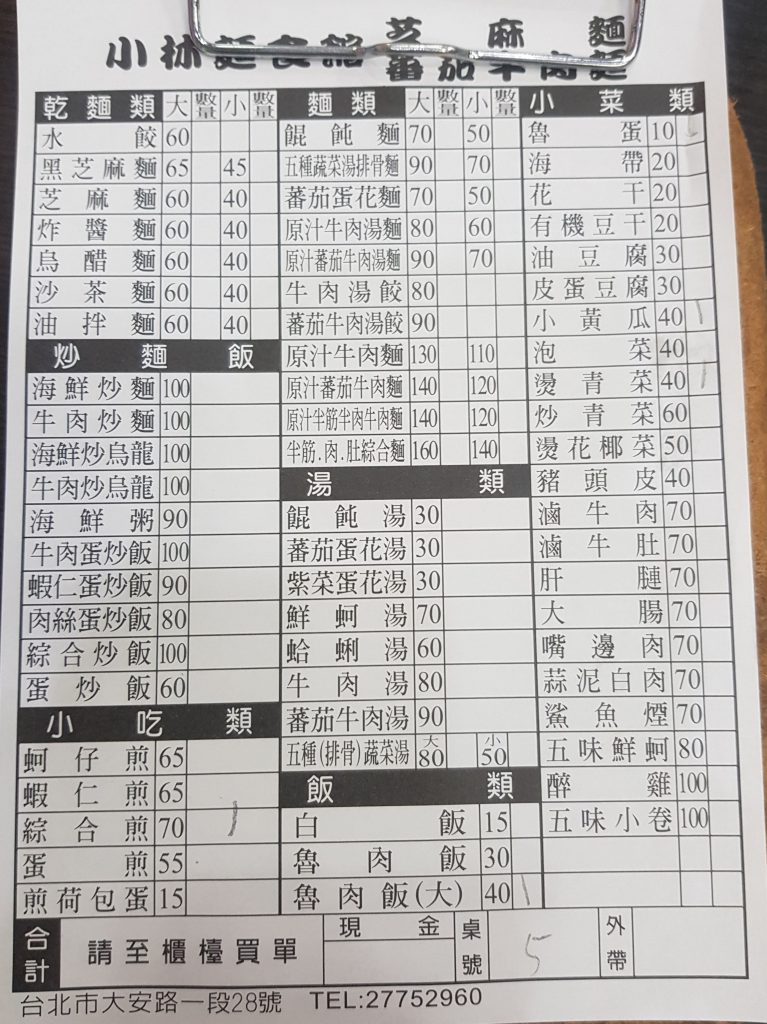 小林麵食館
芝麻麵
蕃茄牛肉麵
乾麵類 大 數量 小 數量
水餃 60
黑芝麻麵 65 45
芝麻麵 60 40
炸醬麵 60 40
烏醋麵 60 40
沙茶麵 60 40
油拌麵 60 40
炒麵飯
海鮮炒麵 100
牛肉炒麵 100
海鮮炒烏龍 100
牛肉炒烏龍 100
海鮮粥 90
牛肉蛋炒飯 100
蝦仁蛋炒飯 90
肉絲蛋炒飯 80
綜合炒飯 100
蛋炒飯 60
小吃類
蚵仔煎 65
蝦仁煎 65
綜合煎 70 1
蛋煎 55
煎荷包蛋 15
麵類 大 數量 小 數量
餛飩麵 70 50
五種蔬菜湯排骨麵 90 70
蕃茄蛋花麵 70 50
原汁牛肉湯麵 80 60
原汁蕃茄牛肉湯麵 90 70
牛肉湯餃 80
蕃茄牛肉湯餃 90
原汁牛肉麵 130 110
原汁蕃茄牛肉麵 140 120
原汁半筋半肉牛肉麵 140 120
半筋.肉.肚綜合麵 160 140
湯類
餛飩湯 30
蕃茄蛋花湯 30
紫菜蛋花湯 30
鮮蚵湯 70
蛤蜊湯 60
牛肉湯 80
蕃茄牛肉湯 90
五種(排骨)蔬菜湯 大80 小50
飯類
白飯 15
魯肉飯 30
魯肉飯(大) 40 1
小菜類
魯蛋 10 1
海帶 20
花干 20
有機豆干 20
油豆腐 30
皮蛋豆腐 30
小黃瓜 40 1
泡菜 40
燙青菜 40 1
炒青菜 60
燙花椰菜 50
豬頭皮 40
滷牛肉 70
滷牛肚 70
肝腱 70
大腸 70
嘴邊肉 70
蒜泥白肉 70
鯊魚煙 70
五味鮮蚵 80
醉雞 100
五味小卷 100
合計 請至櫃檯買單 現金 桌號 5 外帶
台北市大安路一段28號 TEL:27752960